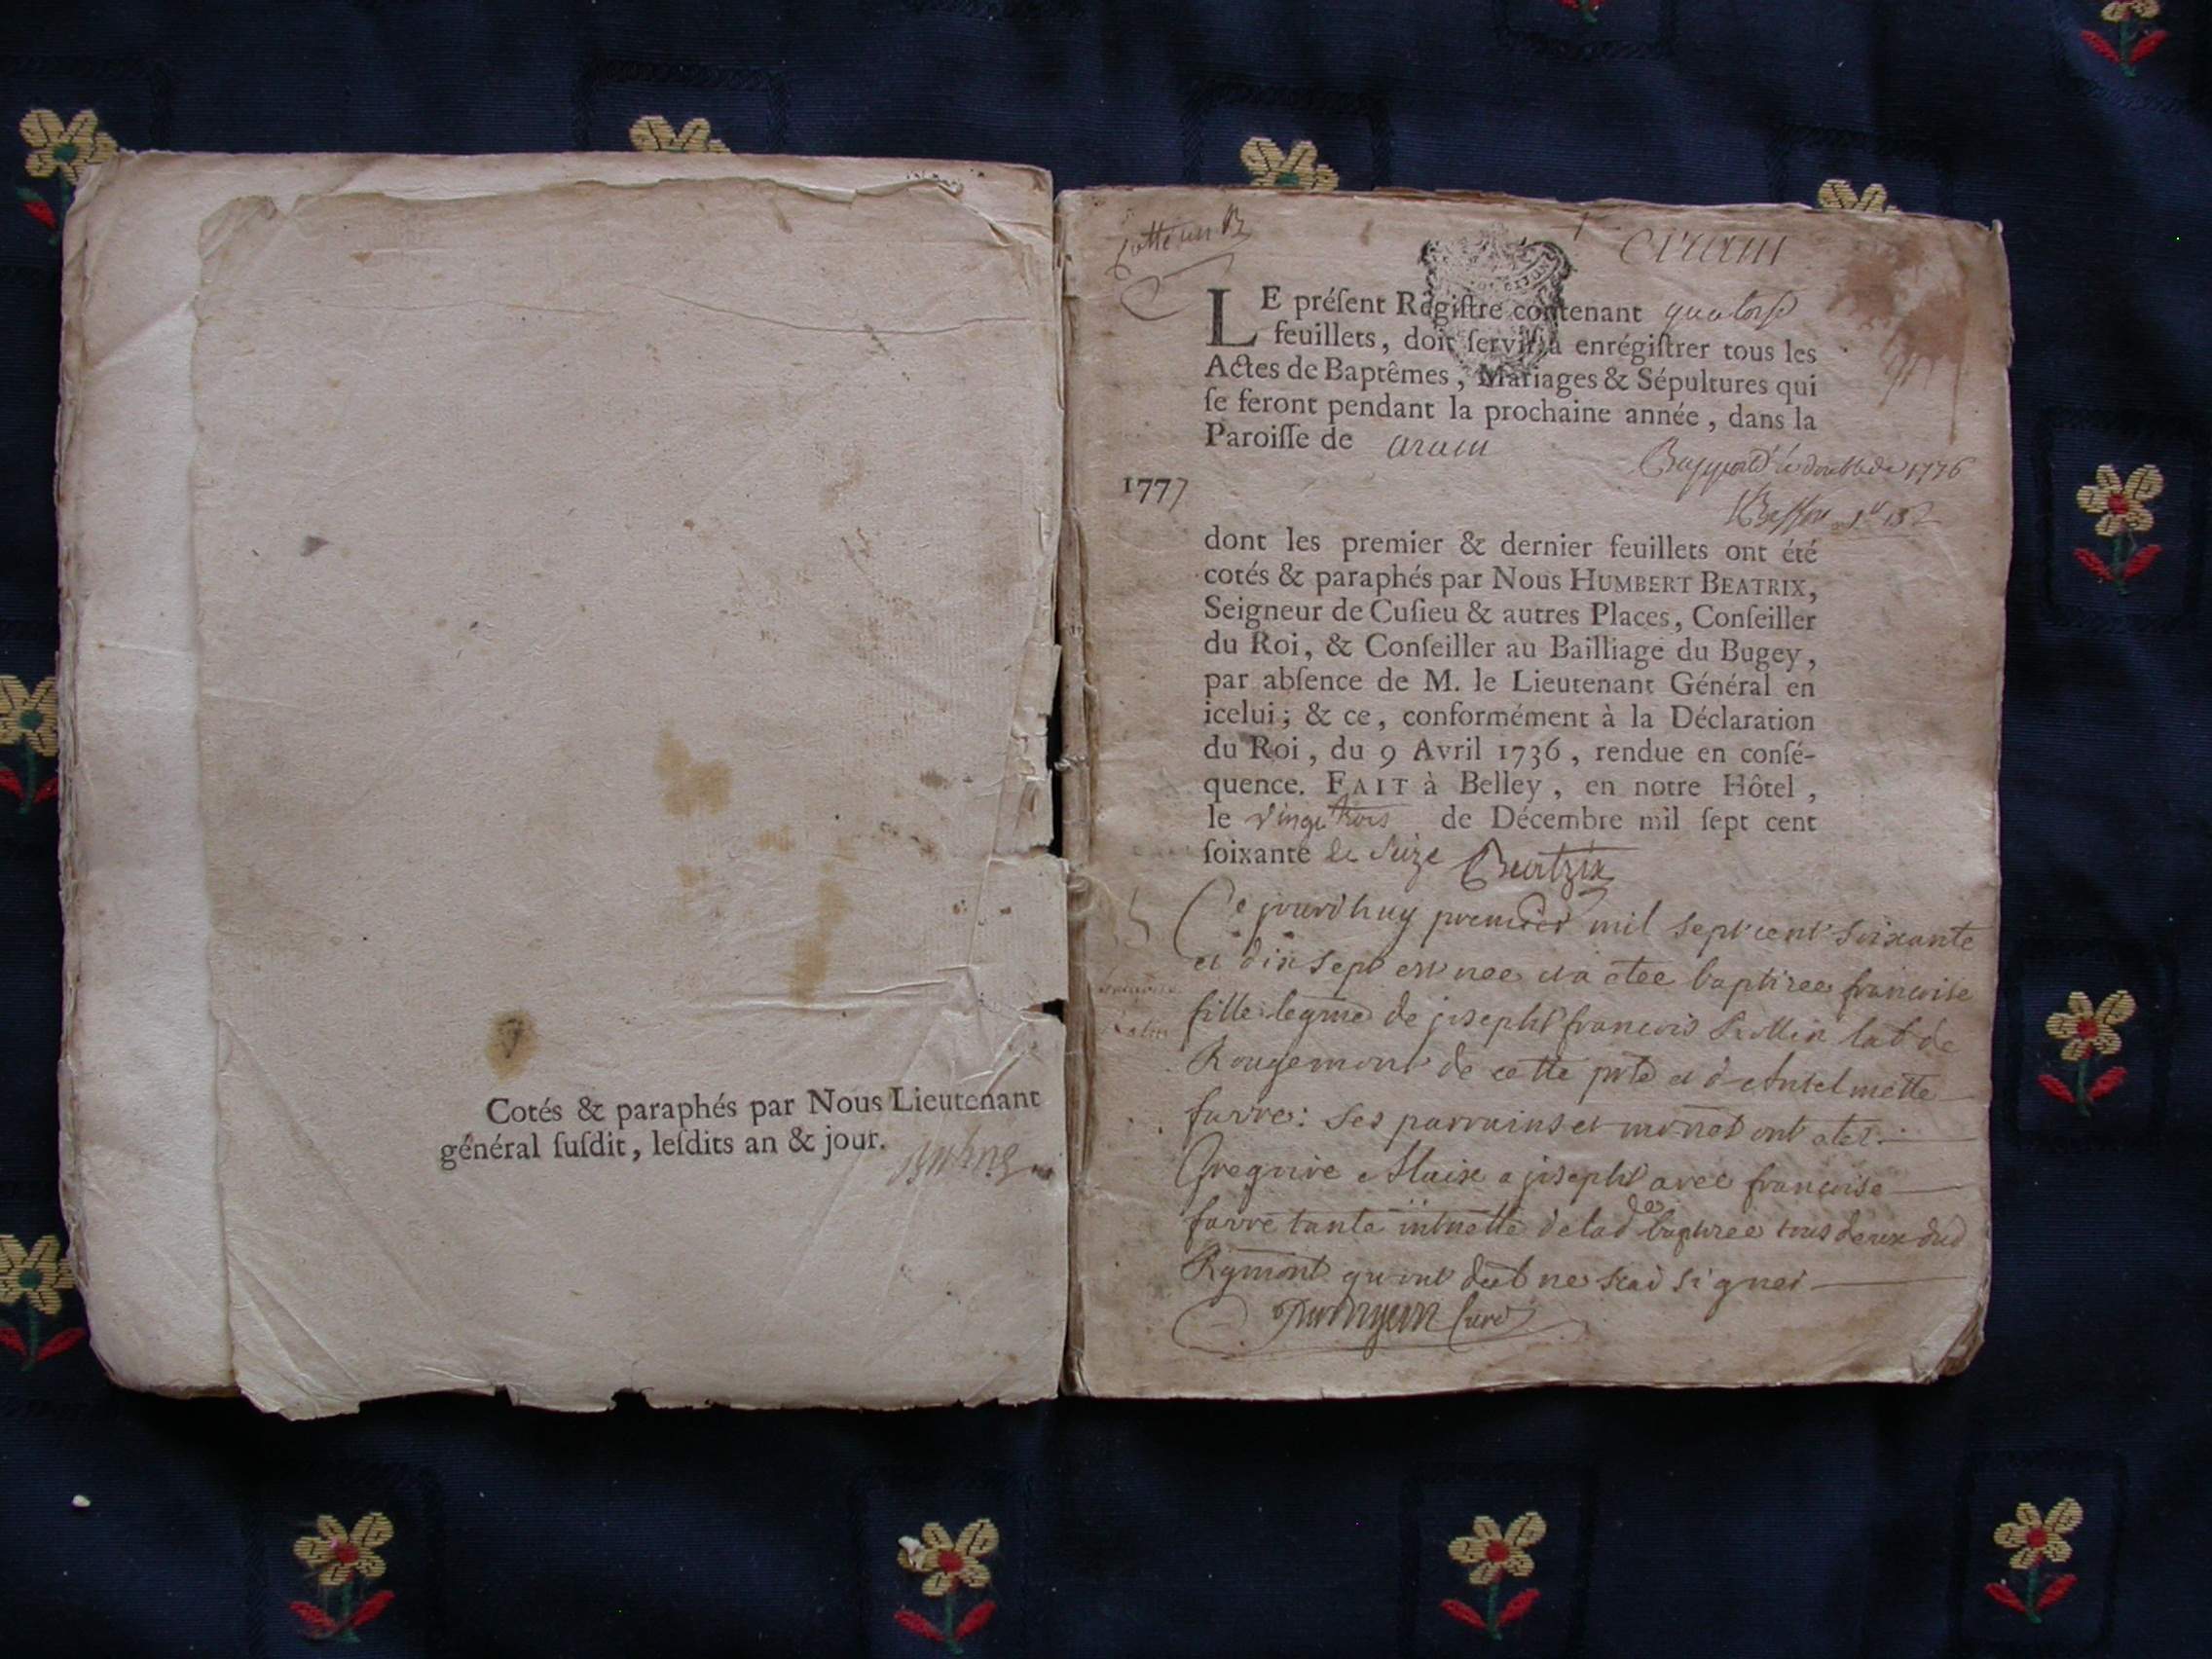 Cotés & paraphés par Nous Lieutenant
général ſuſdit, leſdits an & jour.
Cotté un B
arani
LE préſent Régiſtre contenant quatorſe
feuillets, doit ſervir à enrégiſtrer tous les
Actes de Baptêmes, Mariages & Sépultures qui
ſe feront pendant la prochaine année, dans la
Paroiſſe de arani
le double de 1776
1777
dont les premier & dernier feuillets ont été
cotés & paraphés par Nous HUMBERT BEATRIX,
Seigneur de Cuſieu & autres Places, Conſeiller
du Roi, & Conſeiller au Bailliage du Bugey,
par abſence de M. le Lieutenant Général en
icelui; & ce, conformément à la Déclaration
du Roi, du 9 Avril 1736, rendue en conſé-
quence. FAIT à Belley, en notre Hôtel,
le vingt trois de Décembre mil ſept cent
ſoixante & seize Beatrix
Ce jourd'huy premier mil sept cent soixante
et dix sept est nee et a etee baptizee francoise
fille legme de joseph francois Rollin lab de
Rougemont de cette psse et d'Antelmette
favre: ses parrains et ont etes
Gregoire joseph avec francoise
favre tante de lad baptizee tous deux dud
Rgmont qui ont de ne scav signer
curé